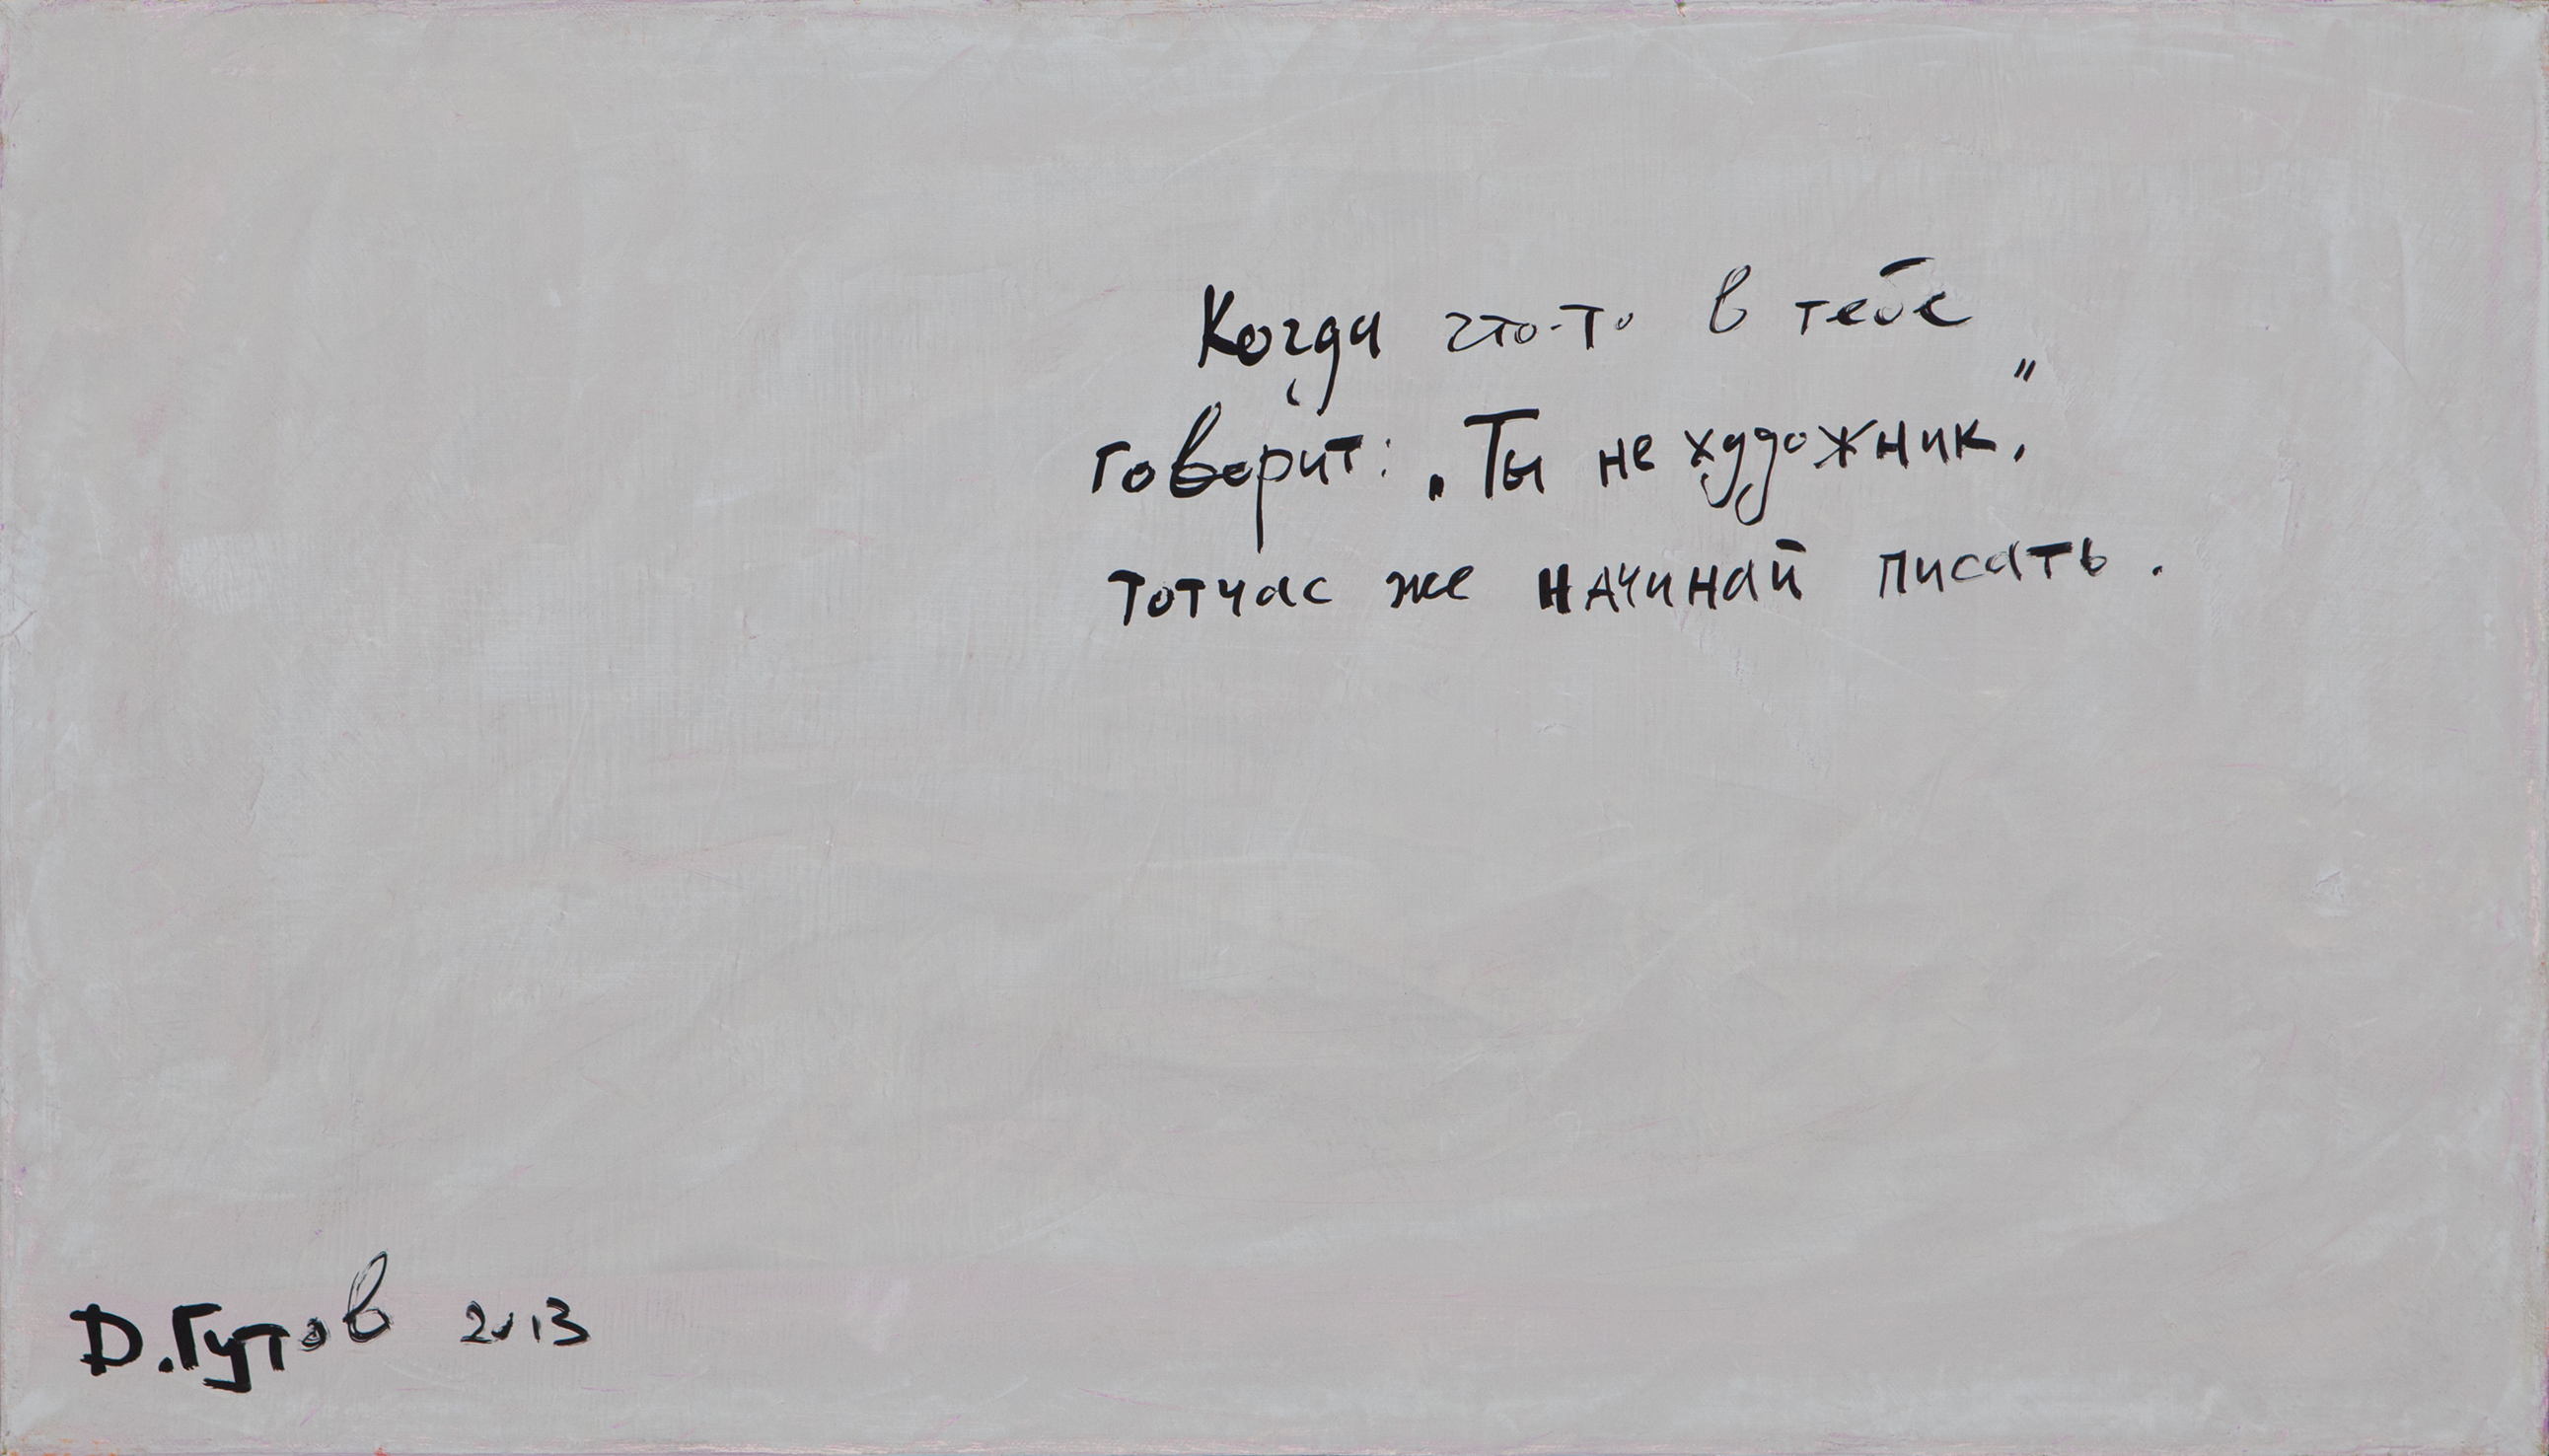 Когда что-то в тебе
говорит: „Ты не художник",
тотчас же начинай писать.
D. Гутов 2013